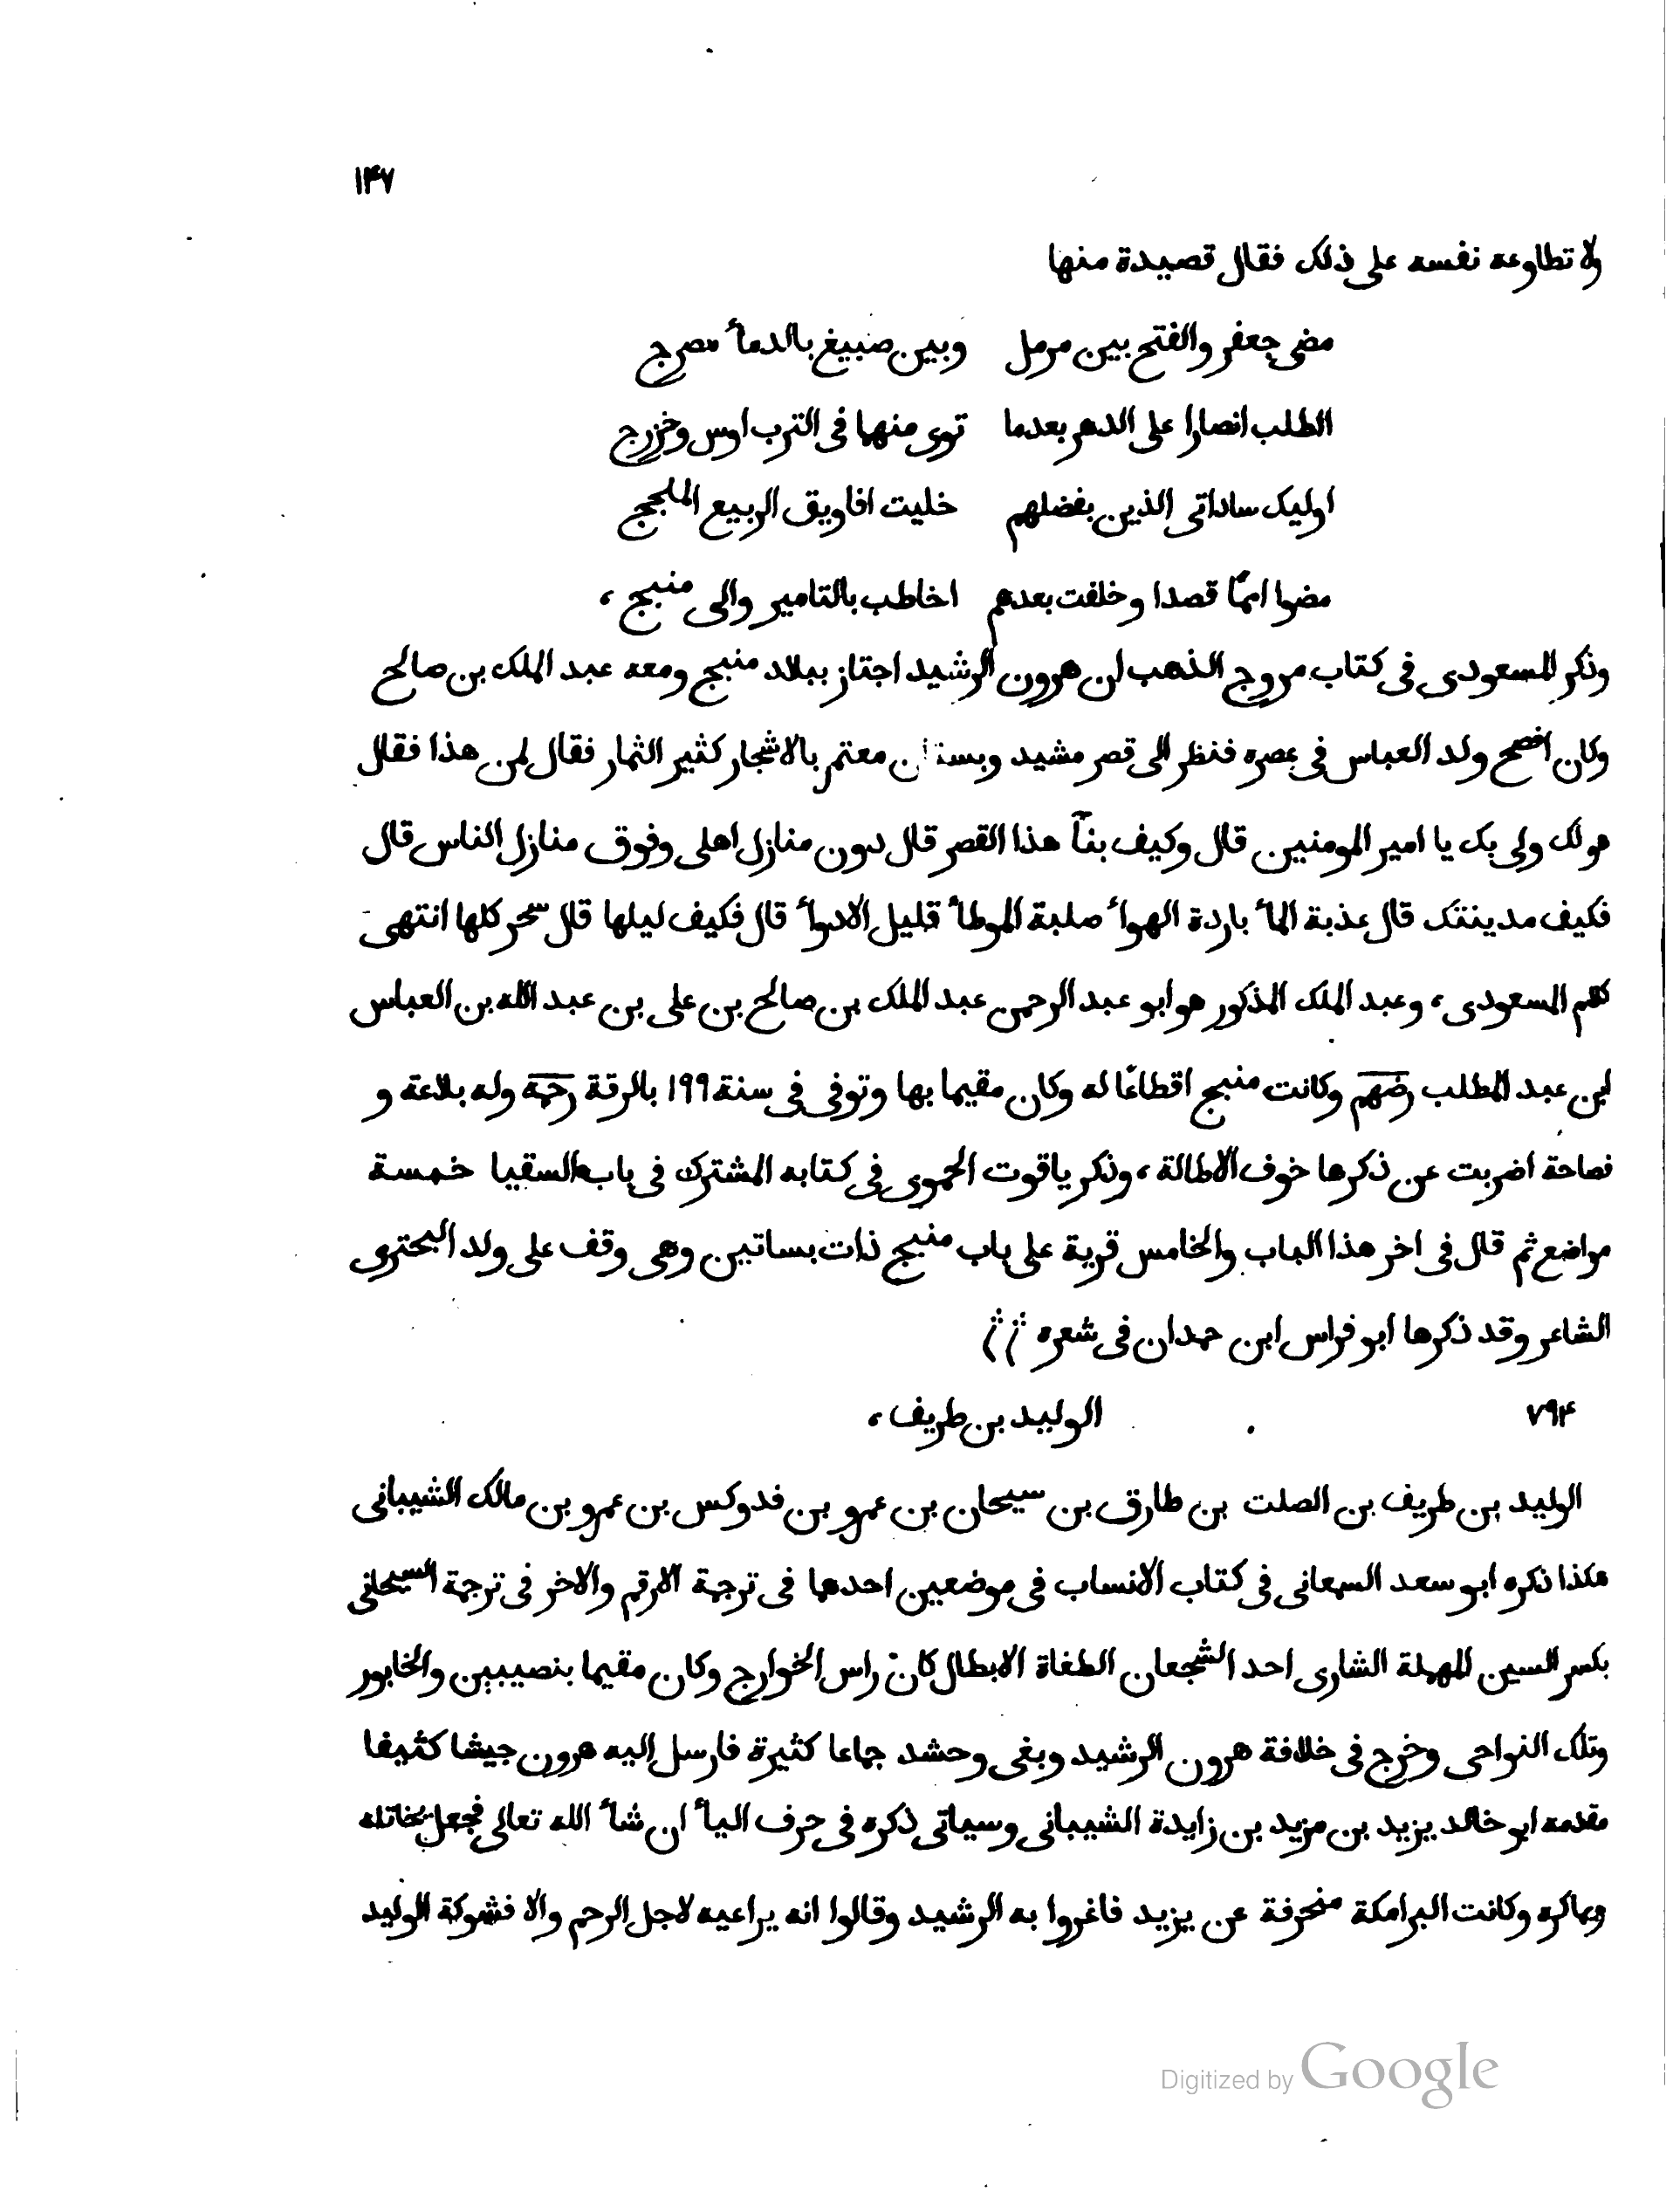 ١۴٧
ولا تطاوعه نفسه على ذلك فقال قصيدة منها
مضى جعفر والفتح بين مرمل وبين صبيغ بالدمأ مصرج
اطلب انصارا على الدهر بعدما توى منهما فى الترب اوس وخزرج
اوليك ساداتى الذين بفضلهم خليت افاويق الربيع الملجج
مضوا امما قصدا وخلفت بعدهم اخاطب بالتامير والى منبج ،
وذكر المسعودى فى كتاب مروج الذهب ان هرون الرشيد اجتاز ببلاد منبج ومعه عبد الملك بن صالح
وكان افصح ولد العباس فى عصره فنظر الى قصر مشيد وبستان معتم بالاشجار كثير الثمار فقال لمن هذا فقال
هو لك ولى بك يا امير المومنين قال وكيف بنأ هذا القصر قال دون منازل اهلى وفوق منازل الناس قال
فكيف مدينتك قال عذبة المأ باردة الهوأ صلبة الموطأ قليل الادوأ قال فكيف ليلها قال سحر كلها انتهى
كلام المسعودى ، وعبد الملك المذكور هو ابو عبد الرحمن عبد الملك بن صالح بن على بن عبد الله بن العباس
ابن عبد المطلب رضهم وكانت منبج اقطاعًا له وكان مقيما بها وتوفى فى سنة ١٩٩ بالرقة رحمة وله بلاغة و
فصاحة اضربت عن ذكرها خوف الاطالة ، وذكر ياقوت الحموى فى كتابه المشترك فى باب السقيا خمسة
مواضع ثم قال فى اخر هذا الباب والخامس قرية على باب منبج ذات بساتين وهى وقف على ولد البحترى
الشاعر وقد ذكرها ابو فراس ابن حمدان فى شعره
٧٩۴ الوليد بن طريف ،
الوليد بن طريف بن الصلت بن طارق بن سيحان بن عمرو بن فدوكس بن عمرو بن مالك الشيبانى
هكذا ذكره ابو سعد السمعانى فى كتاب الانساب فى موضعين احدهما فى ترجمة الارقم والاخر فى ترجمة السيحانى
بكسر السين المهملة الشارى احد الشجعان الطغاة الابطال كان راس الخوارج وكان مقيما بنصيبين والخابور
وتلك النواحى وخرج فى خلافة هرون الرشيد وبغى وحشد جماعا كثيرة فارسل اليه هرون جيشا كثيفا
مقدمه ابو خالد يزيد بن مزيد بن زايدة الشيبانى وسياتى ذكره فى حرف اليأ ان شأ الله تعالى فجعل يخاتله
ويماكره وكانت البرامكة منحرفة عن يزيد فاغروا به الرشيد وقالوا انه يراعيه لاجل الرحم والا فشوكة الوليد
Digitized by Google